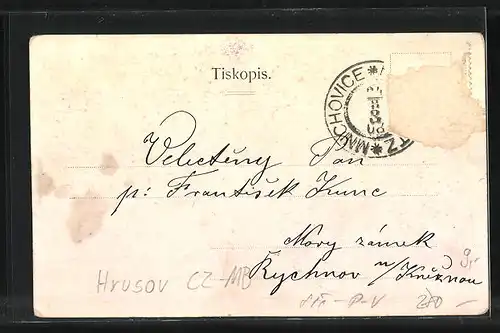 Tiskopis.
*MNICHOVICE*
TZ
08
Velectěný Pan
p: František Kunc
Nový zámek
Rychnov n/Kněžnou
Hrusov CZ-MB